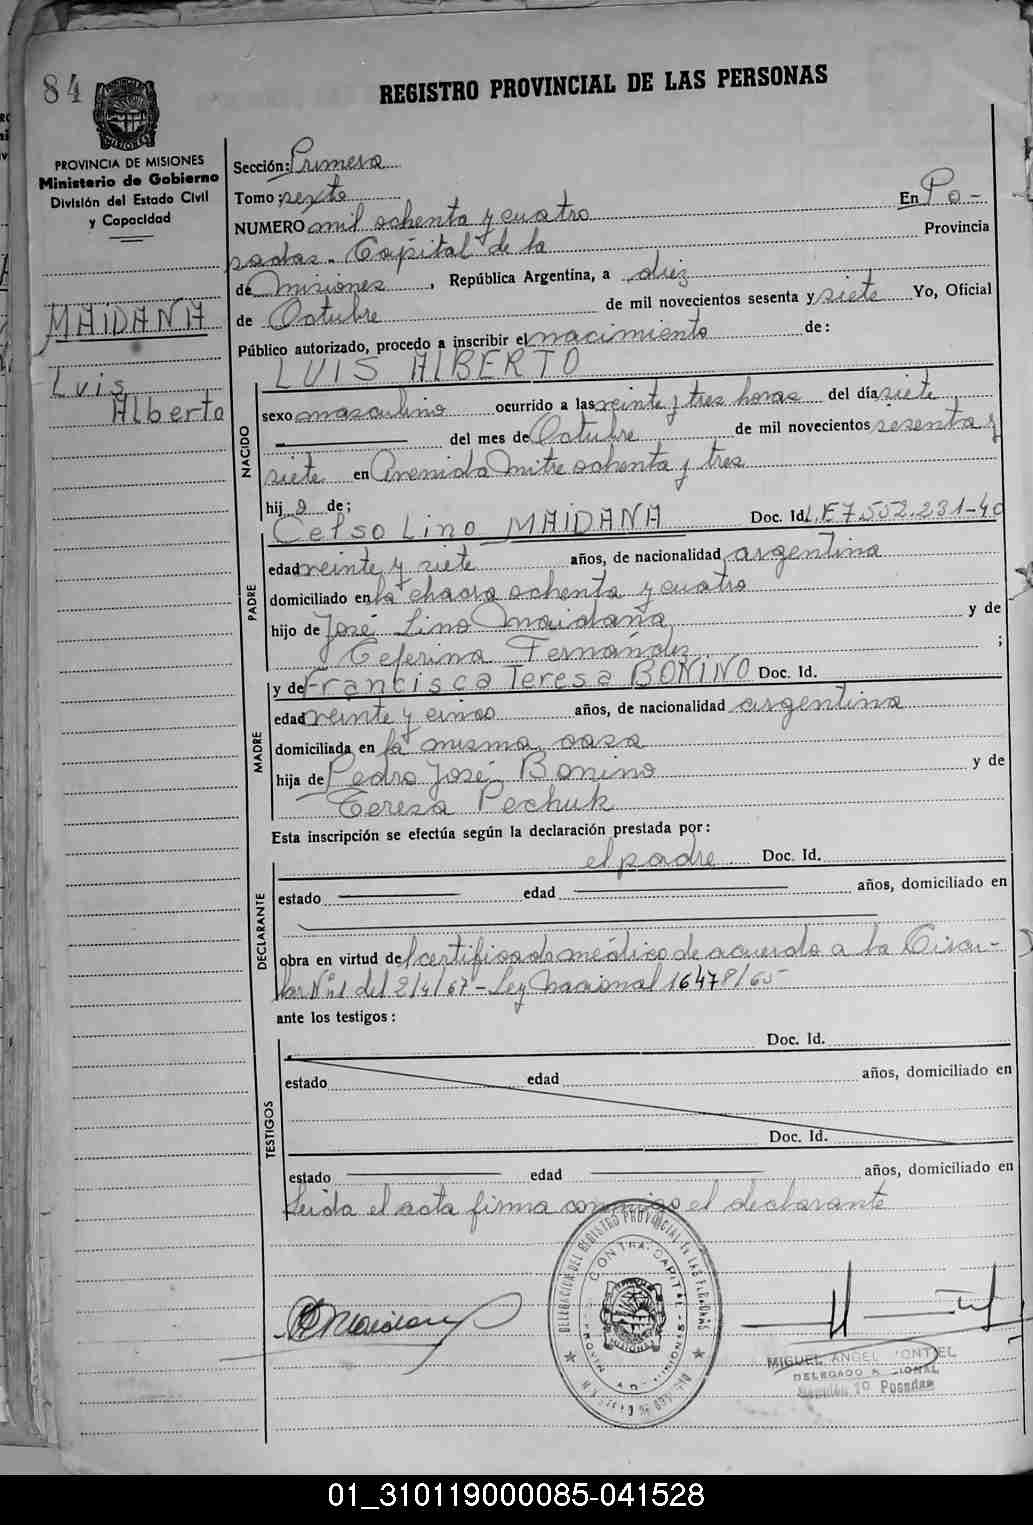 84
REGISTRO PROVINCIAL DE LAS PERSONAS
PROVINCIA DE MISIONES
Ministerio de Gobierno
División del Estado Civil
y Capacidad
MAIDANA
Luis
Alberto
Sección: Primera
Tomo: sexto
En Po-
NUMERO mil ochenta y cuatro
Provincia
sadas - Capital de la
de Misiones, República Argentina, a diez
de Octubre de mil novecientos sesenta y siete Yo, Oficial
Público autorizado, procedo a inscribir el nacimiento de:
LUIS ALBERTO
NACIDO
sexo masculino ocurrido a las veinte y tres horas del día siete
del mes de Octubre de mil novecientos sesenta y
siete en Avenida Mitre ochenta y tres
hijo de;
Celso Lino MAIDANA Doc. Id. L.E 7.552.231-40
PADRE
edad veinte y siete años, de nacionalidad argentina
domiciliado en la chacra ochenta y cuatro
hijo de José Lino Maidana y de
Ceferina Fernández ;
y de Francisca Teresa BONINO Doc. Id.
MADRE
edad veinte y cinco años, de nacionalidad argentina
domiciliada en la misma casa
hija de Pedro José Bonino y de
Teresa Pechuk
Esta inscripción se efectúa según la declaración prestada por:
el padre Doc. Id.
DECLARANTE
estado edad años, domiciliado en
obra en virtud del certificado médico de acuerdo a la Circu-
lar Nº 1 del 2/4/67 - Ley Nacional 16478/65
ante los testigos:
Doc. Id.
TESTIGOS
estado edad años, domiciliado en
Doc. Id.
estado edad años, domiciliado en
Leida el acta firma conmigo el declarante
Maidana
DELEGACION DEL REGISTRO PROVINCIAL DE LAS PERSONAS
CAPITAL
MISIONES
MIGUEL ANGEL
DELEGADO
Sección 1º Posadas
01_310119000085-041528